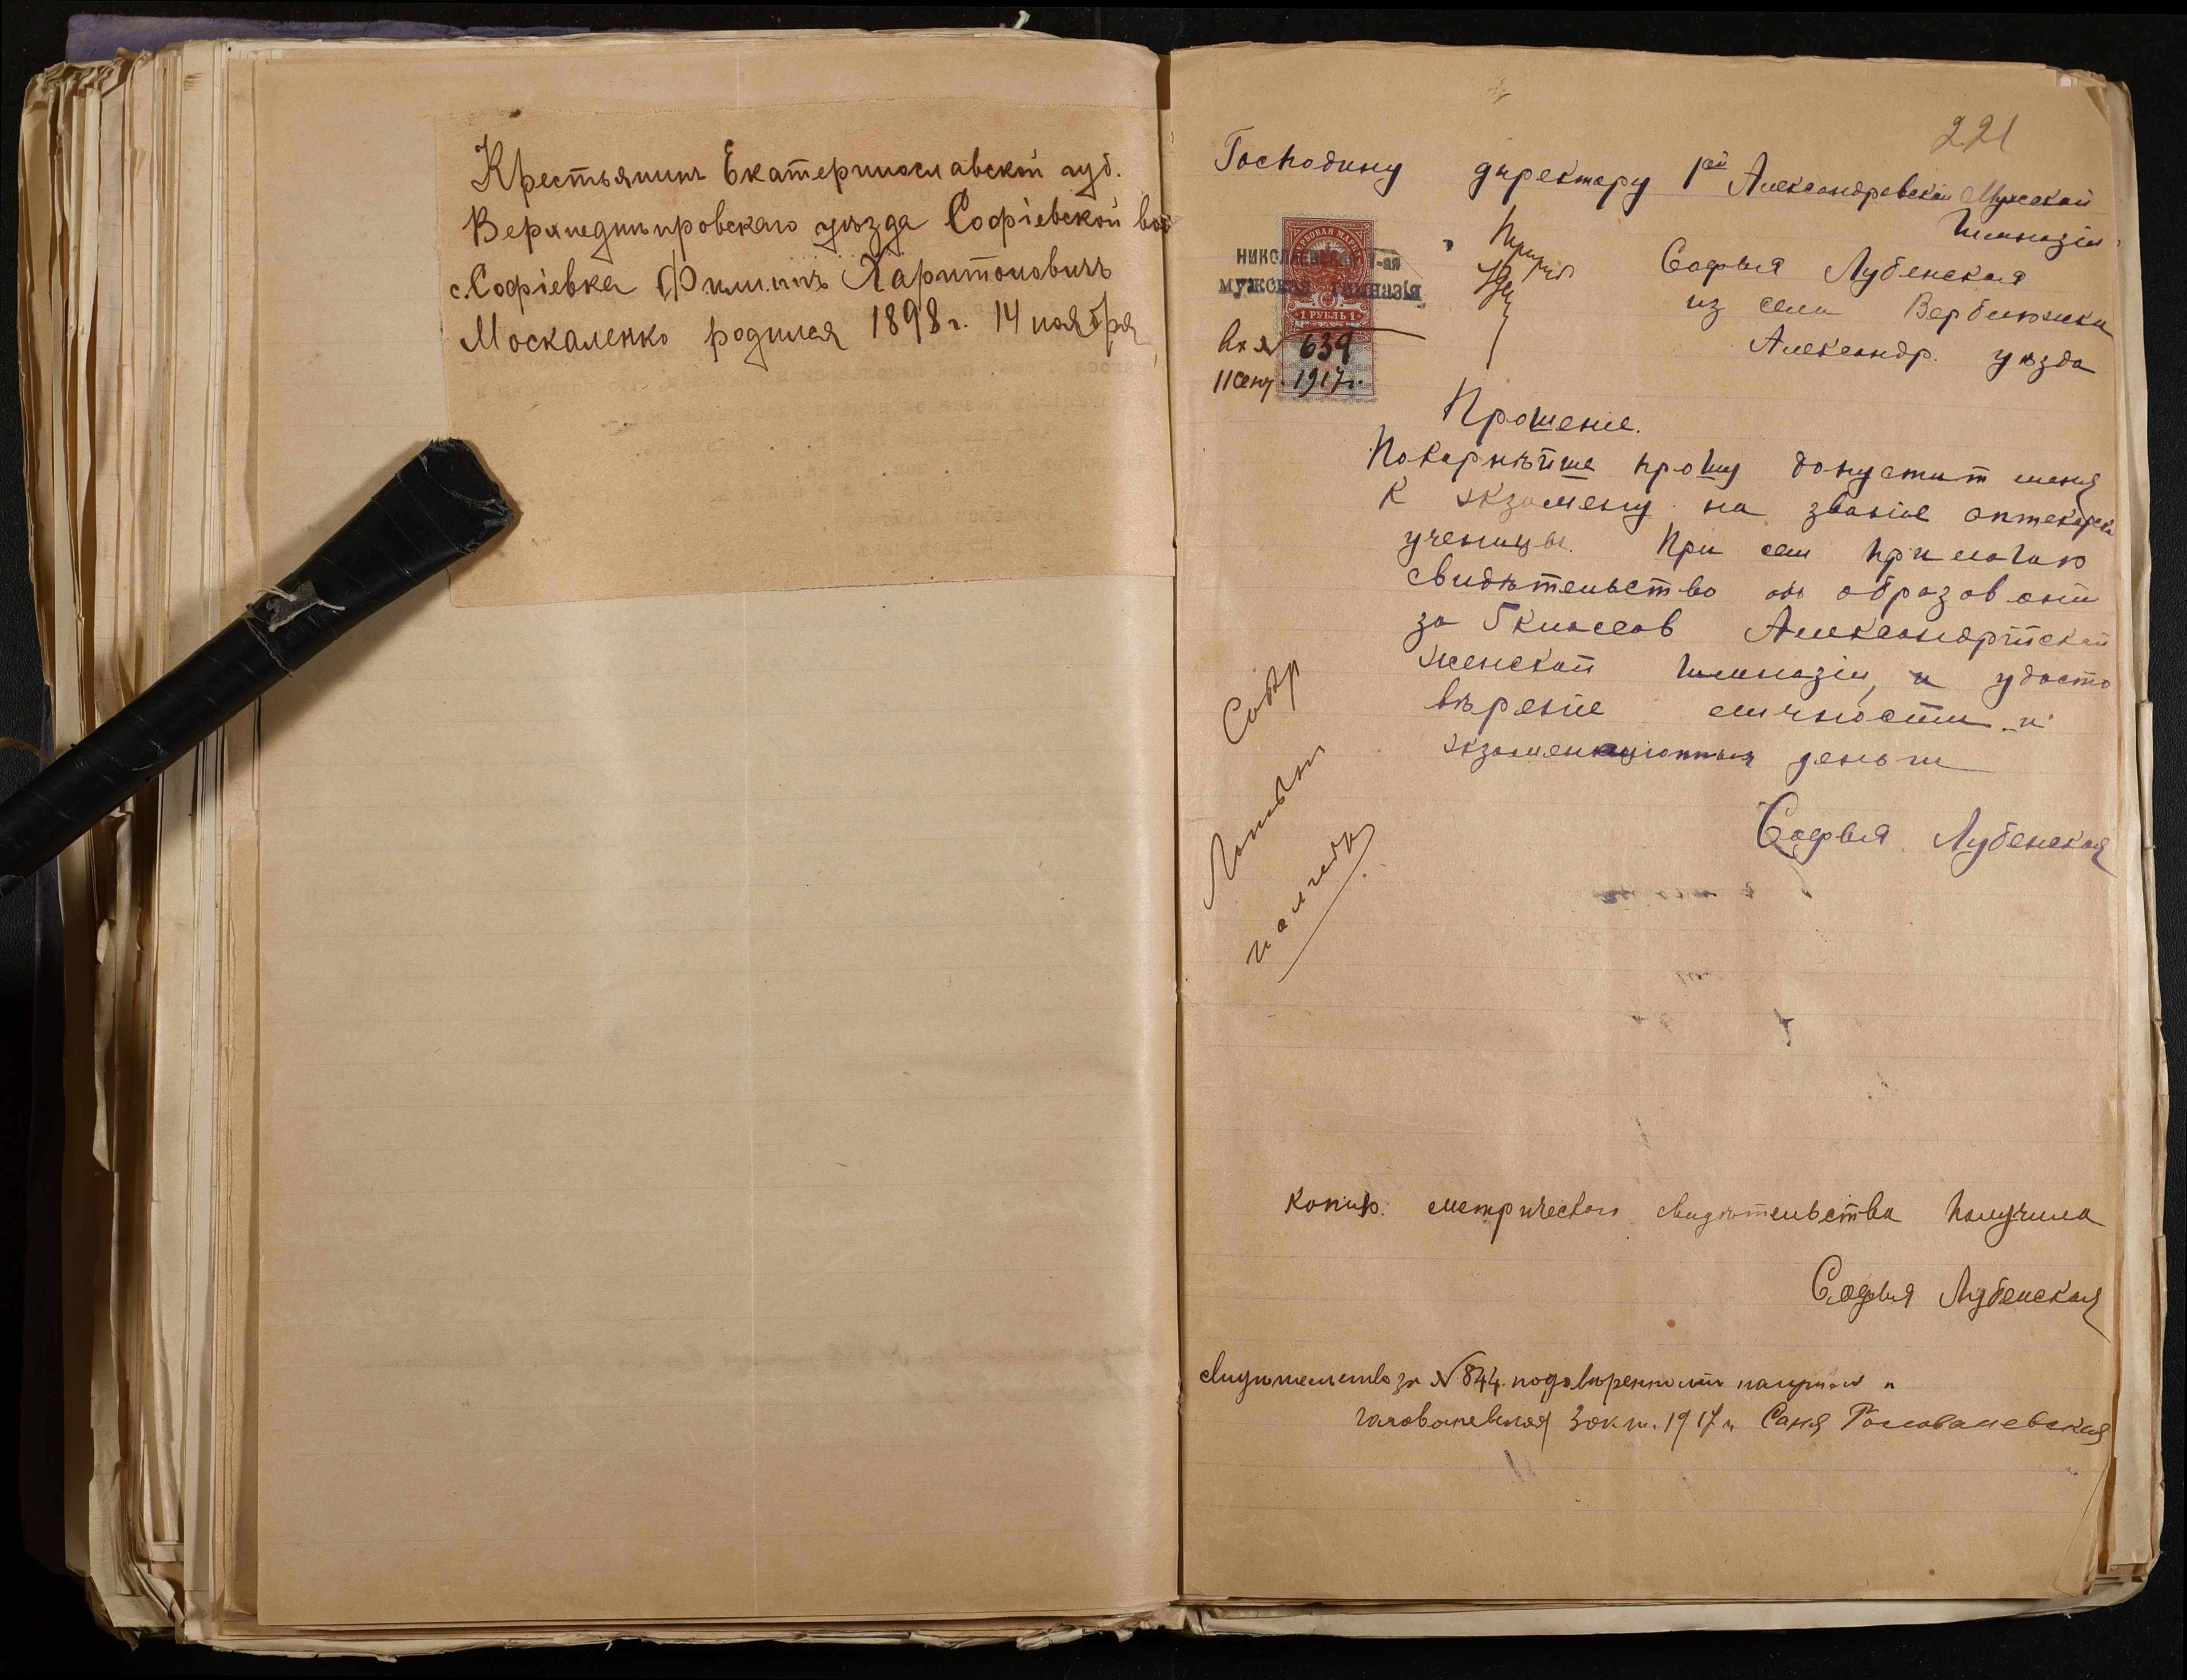 Крестьянинъ Екатеринославской губ.
Верхнеднѣпровскаго уѣзда Софіевской вол
с. Софіевка Филиппъ Харитоновичъ
Москаленко родился 1898 г. 14 ноября
221
Господину директару 1ой Александровской Мужской
Гимназіи
НИКОЛАЕВСКАЯ 1-ая
МУЖСКАЯ ГИМНАЗІЯ
1 РУБЛЬ 1
Вх № 639
11 сент. 1917 г.
Софья Лубенская
из села Верблюжки
Александр. уѣзда
Прошеніе.
Покарнѣйше прошу допустит меня
К экзамену на званіе аптекарск
ученицы. При сем прилогаю
свидѣтельство объ образовании
за 5 классов Александрійской
женской Гимназіи, и удосто
вѣреніе личности и
экзаменаціонныя деньги
Софья Лубенская
Копию метрическаго свидѣтельства получила
Софья Лубенская
Свидѣтельство за № 844
Головоневская 3 окт. 1917 г. Саня Головоневская